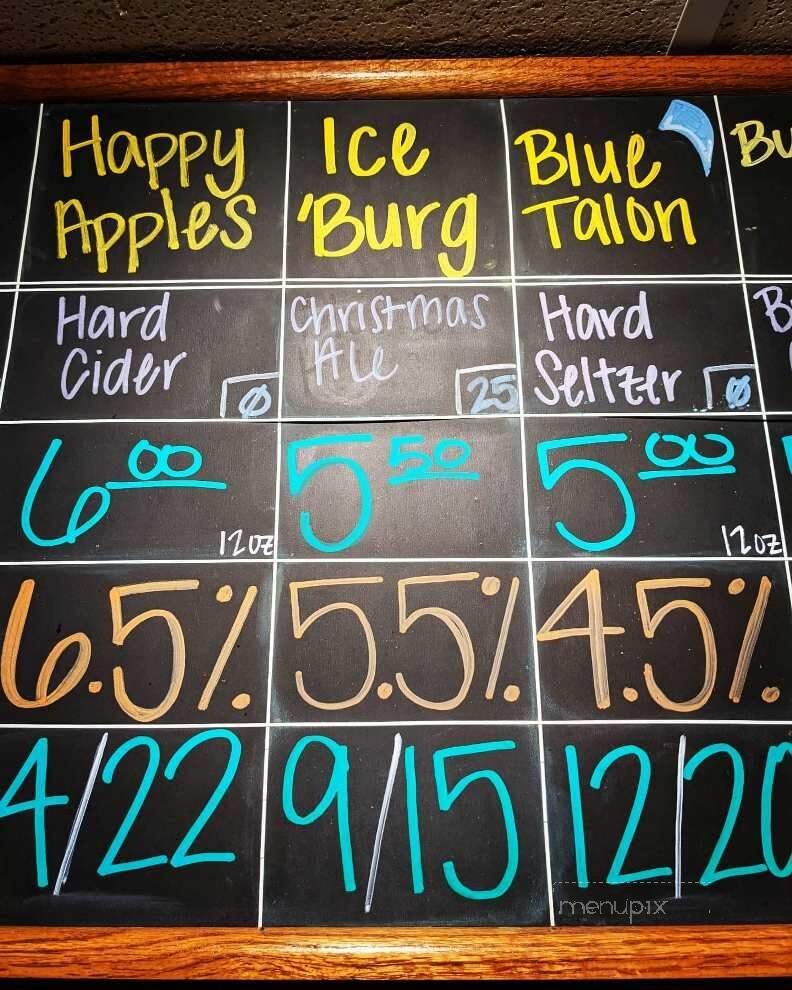 Happy Apples
Ice 'Burg
Blue Talon
Bu
Hard Cider
Ø
Christmas Ale
25
Hard Seltzer
Ø
B
6 00
12oz
5 50
5 00
12oz
6.5%
5.5%
4.5%
4/22
9/15
12/20
menupix